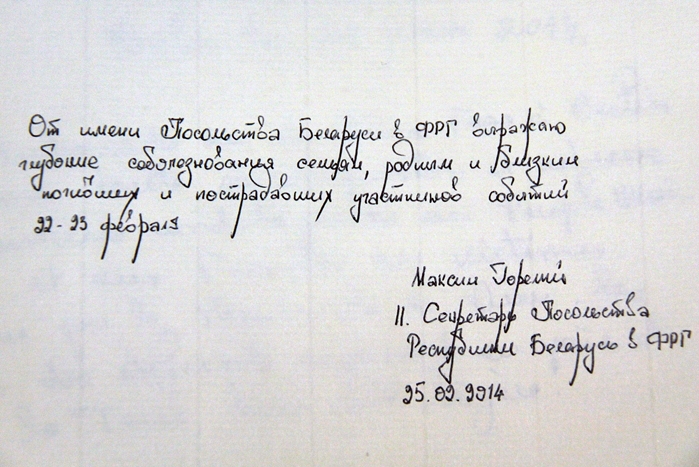 От имени Посольства Беларуси в ФРГ выражаю
глубокие соболезнования семьям, родным и близким
погибших и пострадавших участников событий
22-23 февраля
Максим
II. Секретарь Посольства
Республики Беларусь в ФРГ
25.02.2014